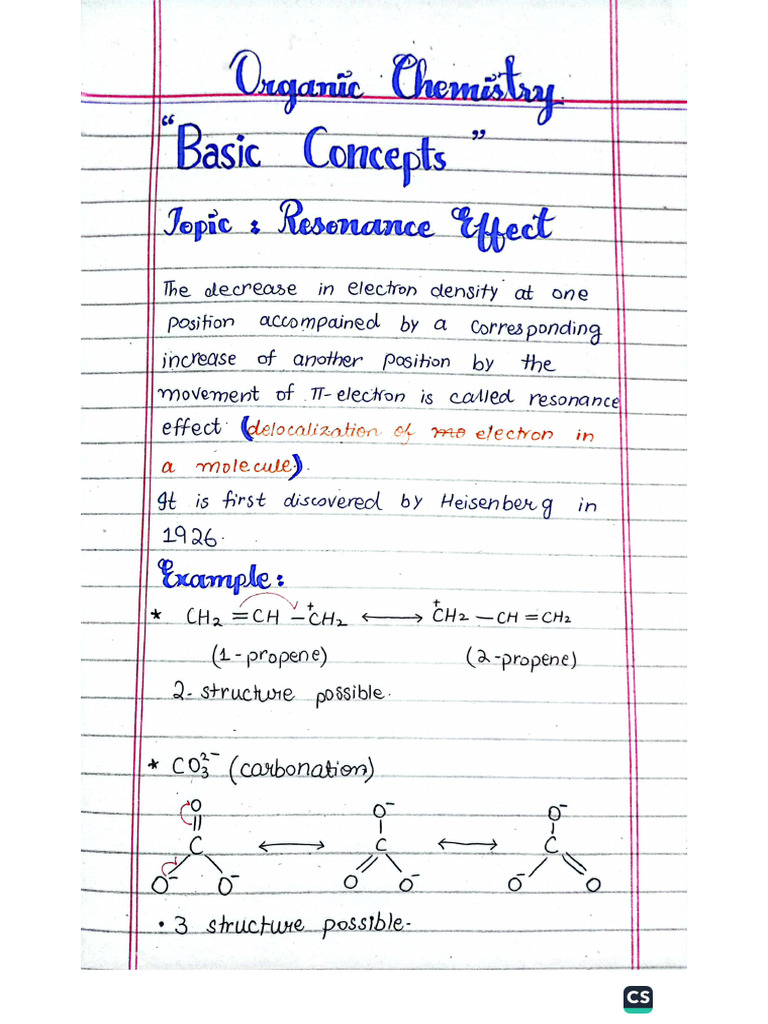 Organic Chemistry
"Basic Concepts"
Topic : Resonance Effect
The decrease in electron density at one
position accompained by a corresponding
increase of another position by the
movement of π-electron is called resonance
effect (delocalization of mo electron in
a molecule).
It is first discovered by Heisenberg in
1926.
Example:
* CH₂ = CH – ⁺CH₂ ⟷ ⁺CH₂ – CH = CH₂
(1-propene) (2-propene)
2- structure possible.
* CO₃²⁻ (carbonation)
O O⁻ O⁻
C ⟷ C ⟷ C
O⁻ O⁻ O O⁻ O⁻ O
• 3 structure possible-
CS